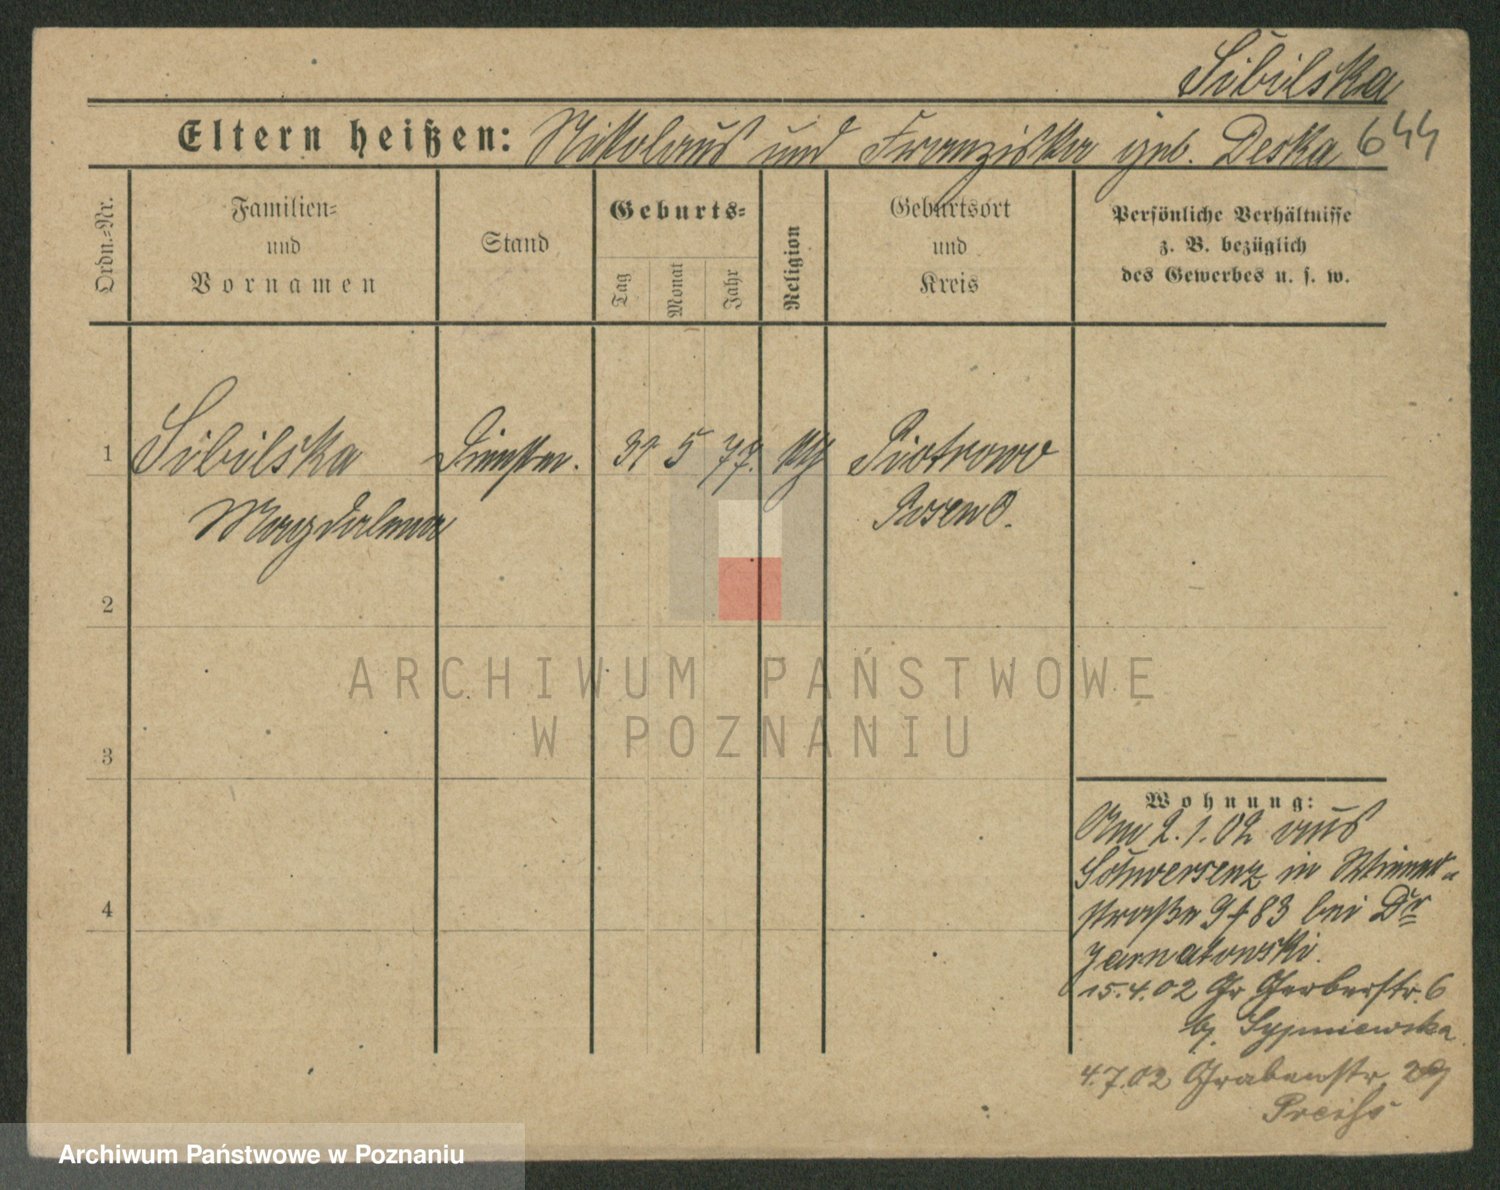 Sibilska
Eltern heißen: Nikolaus und Franziska geb. Deska 644
Ordn.-Nr.
Familien-
und
Vornamen
Stand
Geburts-
Tag
Monat
Jahr
Religion
Geburtsort
und
Kreis
Persönliche Verhältnisse
z. B. bezüglich
des Gewerbes u. s. w.
1 Sibilska Dienstm. 31 5 77. kth Piotrowo
Magdalena Posen O.
2
3
4
ARCHIWUM PAŃSTWOWE
W POZNANIU
Wohnung:
Am 2.1.02 aus
Schwersenz in
straße bei Dr
Jarnatowski.
15.4.02 Gr Gerberstr. 6
b. Sypniewska
4.7.02 Grabenstr.
Preiss
Archiwum Państwowe w Poznaniu